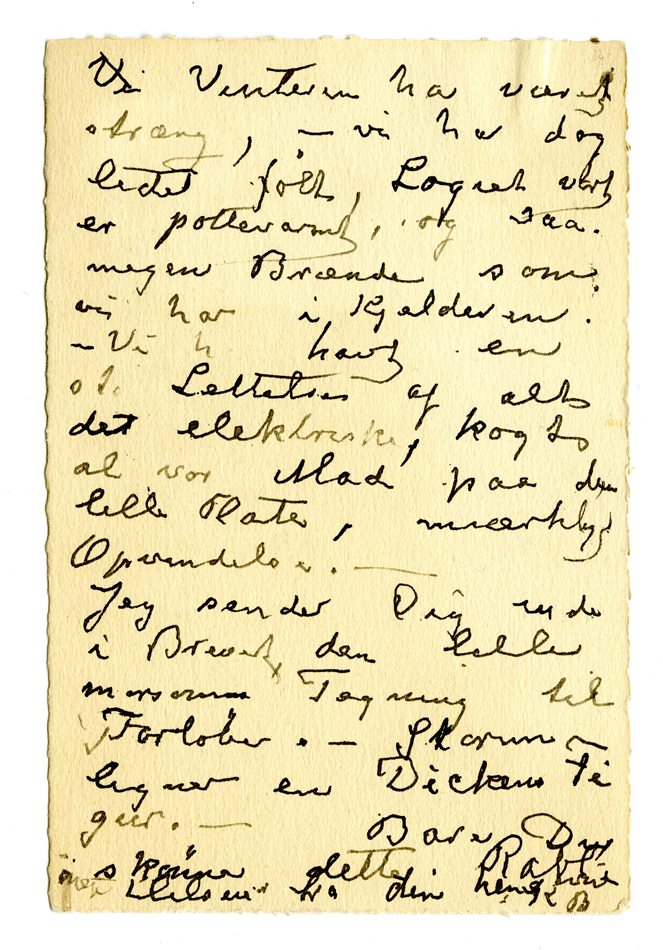 Vi Vinteren har været
stræng, – vi har dog
ledet følt, Logiet vort
er pottevarmt, og saa
megen Brænde som
vi har i Kjelderen.
– Vi h havt en
st. Lettelse af alt
det elektriske, kogt
al vor Mad paa den
lille Plate, mærkelig
Opvindelse. –
Jeg sender Dig inde
i Brevet den lille
morsomme Tegning til
Forløber. – Skorum
ligner en Dickens Fi
gur. – Bare Du
skønner dette Rabl
Hilsen fra din